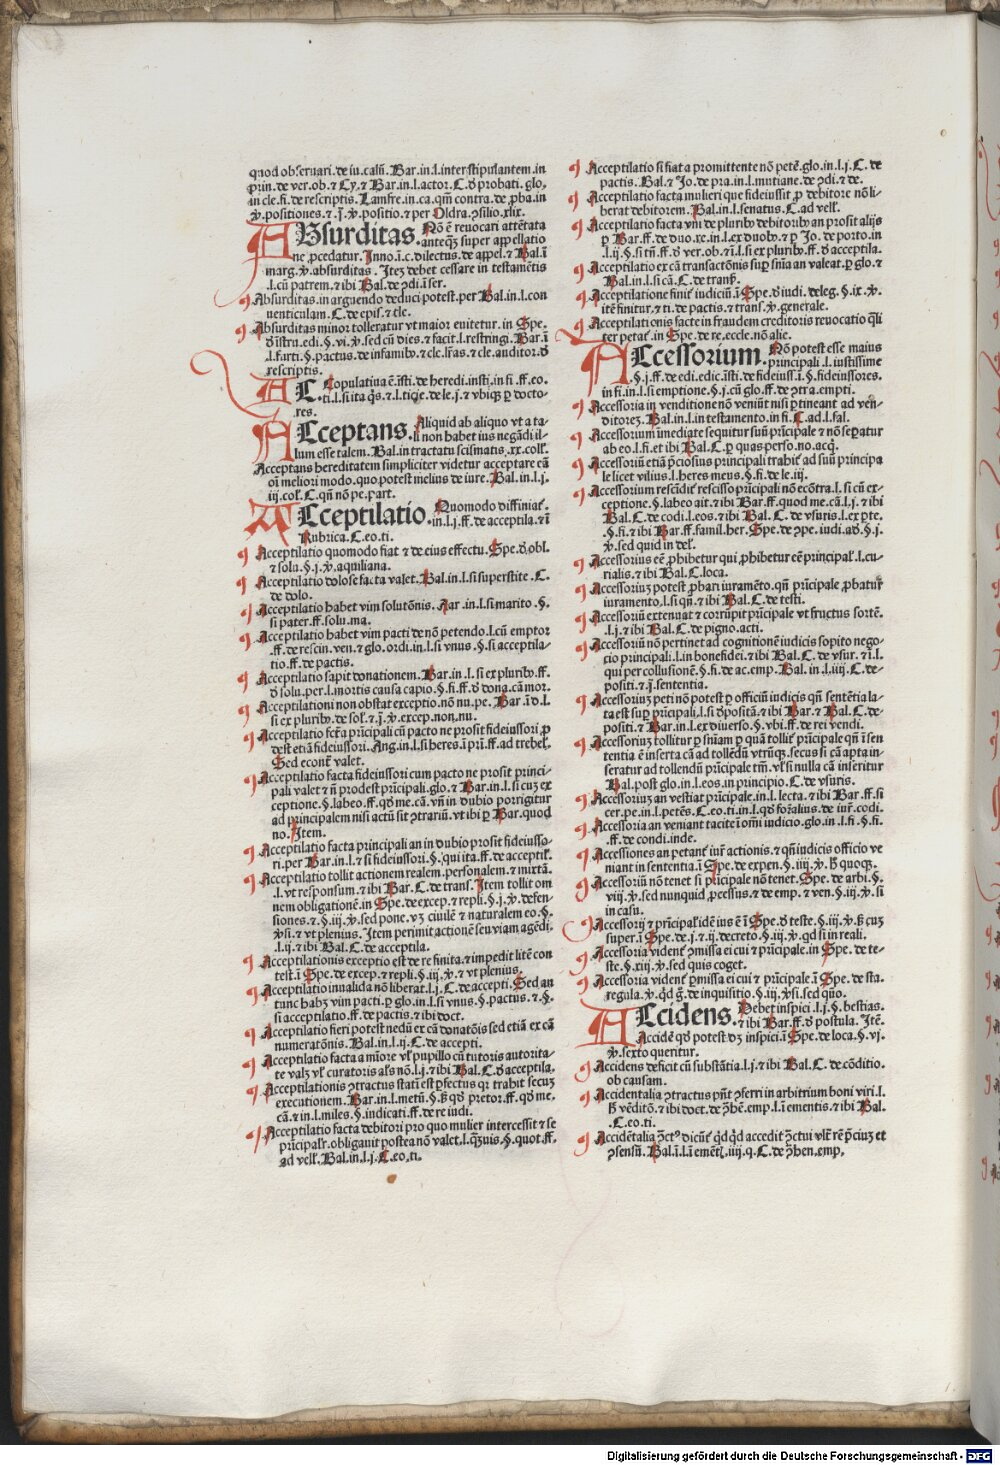 quod obseruari.de iu.calũ. Bar.in.l.inter stipulantem.in
prin.de ver.ob.⁊ Cy.⁊ Bar.in.l.actor.C.d̃ probati.glo.
in cle.fi.de rescriptis. Lamfre.in.ca.qm̃ contra.de.pba.in
v̓.positiones.⁊.j̃.v̓.positio.⁊ per Oldra.ꝯsilio.xlix.
ABsurditas. Nõ ẽ reuocari attẽtata
anteq̃ꝫ super appellatio
ne ꝓcedatur. Inno.ĩ.c.dilectus.de appel.⁊ Bal.ĩ
marg.v̓.absurditas. Iteꝫ debet cessare in testamẽtis
.l.cũ patrem.⁊ ibi Bal.de ꝯdi.ĩ ser.
Absurditas.in arguendo deduci potest.per Bal.in.l.con
uenticulam.C.de epis.⁊ cle.
Absurditas minor tolleratur vt maior euitetur.in Spe.
d̃ ĩstru.edi.§.vi.v̓.sed cũ dies.⁊ facit.l.restringi. Bar.ĩ
.l.furti.§.pactus.de infamib⁹.⁊ cle.lr̃as.⁊ cle.auditor.d̃
rescriptis.
AC. Copulatiua ẽ.ĩsti.de heredi.insti.in fi.ff.eo.
ti.l.si ita q̃s.⁊.l.titie.de le.j.⁊ vbiqꝫ ꝑ docto-
res.
ACceptans. Aliquid ab aliquo vt a ta-
li non habet ius negãdi il-
lum esse talem. Bal.in tractatu scismatis.xx.coll̓.
Acceptans hereditatem simpliciter videtur acceptare eã
oĩ meliori modo.quo potest melius de iure. Bal.in.l.j.
iij.col̓.C.qñ nõ pe.part.
ACceptilatio. Quomodo diffiniat̓.
in.l.j.ff.de acceptila.⁊ ĩ
Rubrica.C.eo.ti.
Acceptilatio quomodo fiat ⁊ de eius effectu. Spe.d̃.obl.
⁊ solu.§.j.v̓.aquiliana.
Acceptilatio dolose facta valet. Bal.in.l.si superstite.C.
de dolo.
Acceptilatio habet vim solutõnis. Bar.in.l.si marito.§.
si pater.ff.solu.ma.
Acceptilatio habet vim pacti de nõ petendo.l.cũ emptor
.ff.de rescin.ven.⁊ glo.ordi.in.l.si vnus.§.si acceptila-
tio.ff.de pactis.
Acceptilatio sapit donationem. Bar.in.l.si ex plurib⁹.ff.
d̃ solu.per.l.mortis causa capio.§.fi.ff.d̃ dona.cã mor.
Acceptilationi non obstat exceptio.nõ nu.pe. Bar.ĩ d.l.
si ex plurib⁹.de sol̓.⁊.j̃.v̓.excep.non.nu.
Acceptilatio fctã pr̃icipali cũ pacto ne prosit fideiussori ꝓ
dest etiã fideiussori. Ang.in.l.si heres.ĩ pri.ff.ad trebel̓.
Sed econt̓ valet.
Acceptilatio facta fideiussori cum pacto ne prosit princi-
pali valet ⁊ ñ prodest pr̃icipali.glo.⁊ Bar.in.l.si cuꝫ ex
ceptione.§.labeo.ff.qd̓ me.cã.vñ in dubio porrigitur
ad principalem nisi actũ sit ꝯtrariũ.vt ibi ꝑ Bar.quod
no. Item.
Acceptilatio facta principali an in dubio prosit fideiusso-
ri.per Bar.in.l.⁊ si fideiussori.§.qui ita.ff.de acceptil̓.
Acceptilatio tollit actionem realem.personalem.⁊ mixtã.
.l.vt responsum.⁊ ibi Bar.C.de trans̓. Item tollit om
nem obligationẽ.in Spe.de excep.⁊ repli.§.j.v̓.defen-
siones.⁊.§.iij.v̓.sed pone.vꝫ ciuilẽ ⁊ naturalem eo.§.
v̓.si.⁊ vt plenius. Item perimit actionẽ seu viam agẽdi.
.l.ij.⁊ ibi Bal.C.de acceptila.
Acceptilationis exceptio est de re finita.⁊ impedit litẽ con
test.ĩ Spe.de excep.⁊ repli.§.iij.v̓.⁊ vt plenius.
Acceptilatio inualida nõ liberat.l.j.C.de accepti. Sed an
tunc habꝫ vim pacti.ꝑ glo.in.l.si vnus.§.pactus.⁊.§.
si acceptilatio.ff.de pactis.⁊ ibi doct.
Acceptilatio fieri potest nedũ ex cã donatõis sed etiã ex cã
numeratõnis. Bal.in.l.ij.C.de accepti.
Acceptilatio facta a miõre vl̓ pupillo cũ tutoris autorita-
te valꝫ vl̓ curatoris als̓ nõ.l.j.⁊ ibi Bal.C.d̃ acceptila.
Acceptilationis ꝯtractus statĩ est ꝑfectus qꝛ trahit secuꝫ
executionem. Bar.in.l.metũ.§.sꝫ qd̓ pretor.ff.qd̓ me.
cã.⁊ in.l.miles.§.iudicati.ff.de re iudi.
Acceptilatio facta debitori pro quo mulier intercessit ⁊ se
pr̃icipalr̓.obligauit postea nõ valet.l.q̃ꝫuis.§.quot.ff.
ad vell̓. Bal.in.l.j.C.eo.ti.
Acceptilatio si fiat a promittente nõ petẽ.glo.in.l.j.C.de
pactis. Bal.⁊ Jo.de pra.in.l.mutiane.de ꝯdi.⁊ de.
Acceptilatio facta mulieri que fideiussit ꝓ debitore nõ li-
berat debitorem. Bal.in.l.senatus.C.ad vell̓.
Acceptilatio facta vni de plurib⁹ debitorib⁹ an prosit alijs
ꝑ Bar.ff.de duo.re.in.l.ex duob⁹.⁊ ꝑ Jo.de porto.in
.l.ij.§.si tñ.ff.d̃ ver.ob.⁊ ĩ.l.si ex plurib⁹.ff.d̃ acceptila.
Acceptilatio ex cã transactõnis suꝑ sñia an valeat.ꝑ glo.⁊
Bal.in.l.si cã.C.de trans̓.
Acceptilatione finit̓ iudiciũ.ĩ Spe.d̃ iudi.deleg.§.ix.v̓.
itẽ finitur.⁊ ti.de pactis.⁊ trans̓.v̓.generale.
Acceptilationis facte in fraudem creditoris reuocatio q̃li
ter petat̓.in Spe.de re.eccle.nõ alie.
ACcessorium. Nõ potest esse maius
principali.l.iustissime
.§.j.ff.de edi.edic.ĩsti.de fideiuss.ĩ.§.fideiussores.
in fi.in.l.si emptione.§.j.cũ glo.ff.de ꝯtra.empti.
Accessoria in venditione nõ veniũt nisi ꝑtineant ad ven-
ditoreꝫ. Bal.in.l.in testamento.in fi.C.ad.l.fal.
Accessorium ĩmediate sequitur suũ pr̃icipale ⁊ nõ seꝑatur
ab eo.l.fi.et ibi Bal.C.ꝑ quas perso.no.acq̃.
Accessoriũ etiã p̃ciosius principali trahit̓ ad suũ principa
le licet vilius.l.heres meus.§.fi.de le.iij.
Accessorium rescĩdit̓ rescisso pr̃icipali nõ ecõtra.l.si cũ ex-
ceptione.§.labeo ait.⁊ ibi Bar.ff.quod me.cã.l.j.⁊ ibi
Bal.C.de codi.l.eos.⁊ ibi Bal.C.de vsuris.l.ex ꝑte.
§.fi.⁊ ibi Bar.ff.famil.her. Spe.de ꝯpe.iudi.ad̓.§.j.
v̓.sed quid in del̓.
Accessorius eẽ ꝓhibetur qui ꝓhibetur eẽ principal̓.l.cu-
rialis.⁊ ibi Bal.C.loca.
Accessoriuꝫ potest ꝓbari iuramẽto.qñ pr̃icipale ꝓbatur
iuramento.l.si qñ.⁊ ibi Bal.C.de testi.
Accessoriũ extenuat̓ ⁊ corrũpit̓ pr̃icipale vt fructus sortẽ.
.l.j.⁊ ibi Bal.C.de pigno.acti.
Accessoriũ nõ pertinet ad cognitionẽ iudicis sopito nego-
cio principali.l.in bonefidei.⁊ ibi Bal.C.de vsur.⁊ ĩ.l.
qui per collusionẽ.§.fi.de ac.emp. Bal.in.l.iiij.C.de-
positi.⁊.j̃.sententia.
Accessoriuꝫ peti nõ potest ꝑ officiũ iudicis qñ sentẽtia la-
ta est suꝑ pr̃icipali.l.si d̃positã.⁊ ibi Bar.⁊ Bal.C.de-
positi.⁊ Bar.in.l.ex diuerso.§.vbi.ff.de rei vendi.
Accessoriuꝫ tollitur ꝑ sñiam ꝑ quã tollit̓ pr̃icipale qñ ĩ sen
tentia ẽ inserta cã ad tollẽdũ vtrũqꝫ.secus si cã apta in-
seratur ad tollendũ pr̃icipale tm̃.vl̓ si nulla cã inseritur
Bal.post glo.in.l.eos.in principio.C.de vsuris.
Accessoriuꝫ an vestiat pr̃icipale.in.l.lecta.⁊ ibi Bar.ff.si
cer.pe.in.l.petẽs.C.eo.ti.in.l.qd̓ foꝝalius.de iur̓.codi.
Accessoria an veniant tacite ĩ om̃i iudicio.glo.in.l.fi.§.fi.
.ff.de condi.inde.
Accessiones an petant̓ iur̓ actionis.⁊ qñ iudicis officio ve
niant in sententia.ĩ Spe.de expen.§.iiij.v̓.h̓ quoqꝫ.
Accessoriũ nõ tenet si pr̃icipale nõ tenet. Spe.de arbi.§.
viij.v̓.sed nunquid ꝓcessus.⁊ de emp.⁊ ven.§.iij.v̓.si
in casu.
Accessorij ⁊ pr̃icipal̓ idẽ ius ẽ ĩ Spe.d̃ teste.§.iij.v̓.sꝫ cuꝫ
super.ĩ Spe.de.j.⁊.ij.decreto.§.iij.v̓.qd si in reali.
Accessoria vident̓ ꝯmissa ei cui ⁊ pr̃icipale.in Spe.de te-
ste.§.xiij.v̓.sed quis coget.
Accessoria vident̓ ꝑmissa ei cui ⁊ pr̃icipale.ĩ Spe.de sta.
regula.v̓.q̓d g̃.de inquisitio.§.iij.v̓.si.sed quo.
ACcidens. Debet inspici.l.j.§.bestias.
⁊ ibi Bar.ff.d̃ postula. Itẽ.
Accidẽ qd̓ potest dꝫ inspici.ĩ Spe.de loca.§.vj.
v̓.sexto queritur.
Accidens deficit cũ substãtia.l.j.⁊ ibi Bal.C.de cõditio.
ob causam.
Accidentalia ꝯtractus pñt ꝯferri in arbitrium boni viri.l.
h̓ vẽditõ.⁊ ibi doct.de ꝯ̃hẽ.emp.l.ĩ ementis.⁊ ibi Bal.
.C.eo.ti.
Accidẽtalia ꝯct⁹ dicũt̓ q̓dq̓d accedit ꝯctui vl̓r rẽ p̃cium et
ꝯsensũ. Bal.ĩ.l.ĩ emẽt̓.iiij.q.C.de ꝯ̃hen.emp.
Digitalisierung gefördert durch die Deutsche Forschungsgemeinschaft - DFG